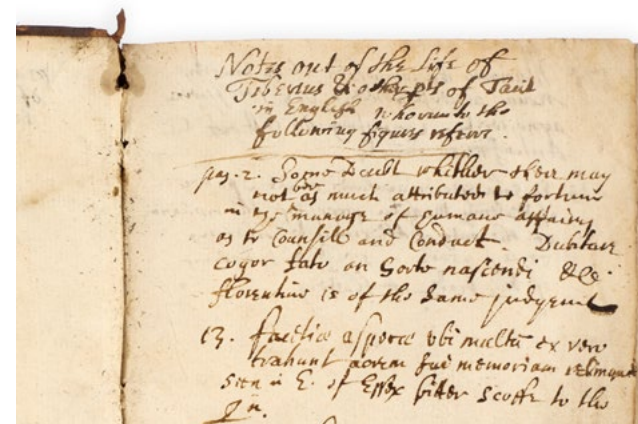 Notes out of the Life of
Tiberius & other pts of Tacit
in English whereunto the
following figures referre.
pag. 2. Some Doubt whether their may
not be as much attributed to fortune
in the manage of humane affairs
as to Counsill and Conduct. Dubitare
cogor fato an Sorte nascendi &c.
florentine is of the same judgement
13. facetiæ asperæ ubi multũ ex vero
trahunt acrem sui memoriam relinquũt
Seen in E. of Essex bitter Scoffe to the
Qn.